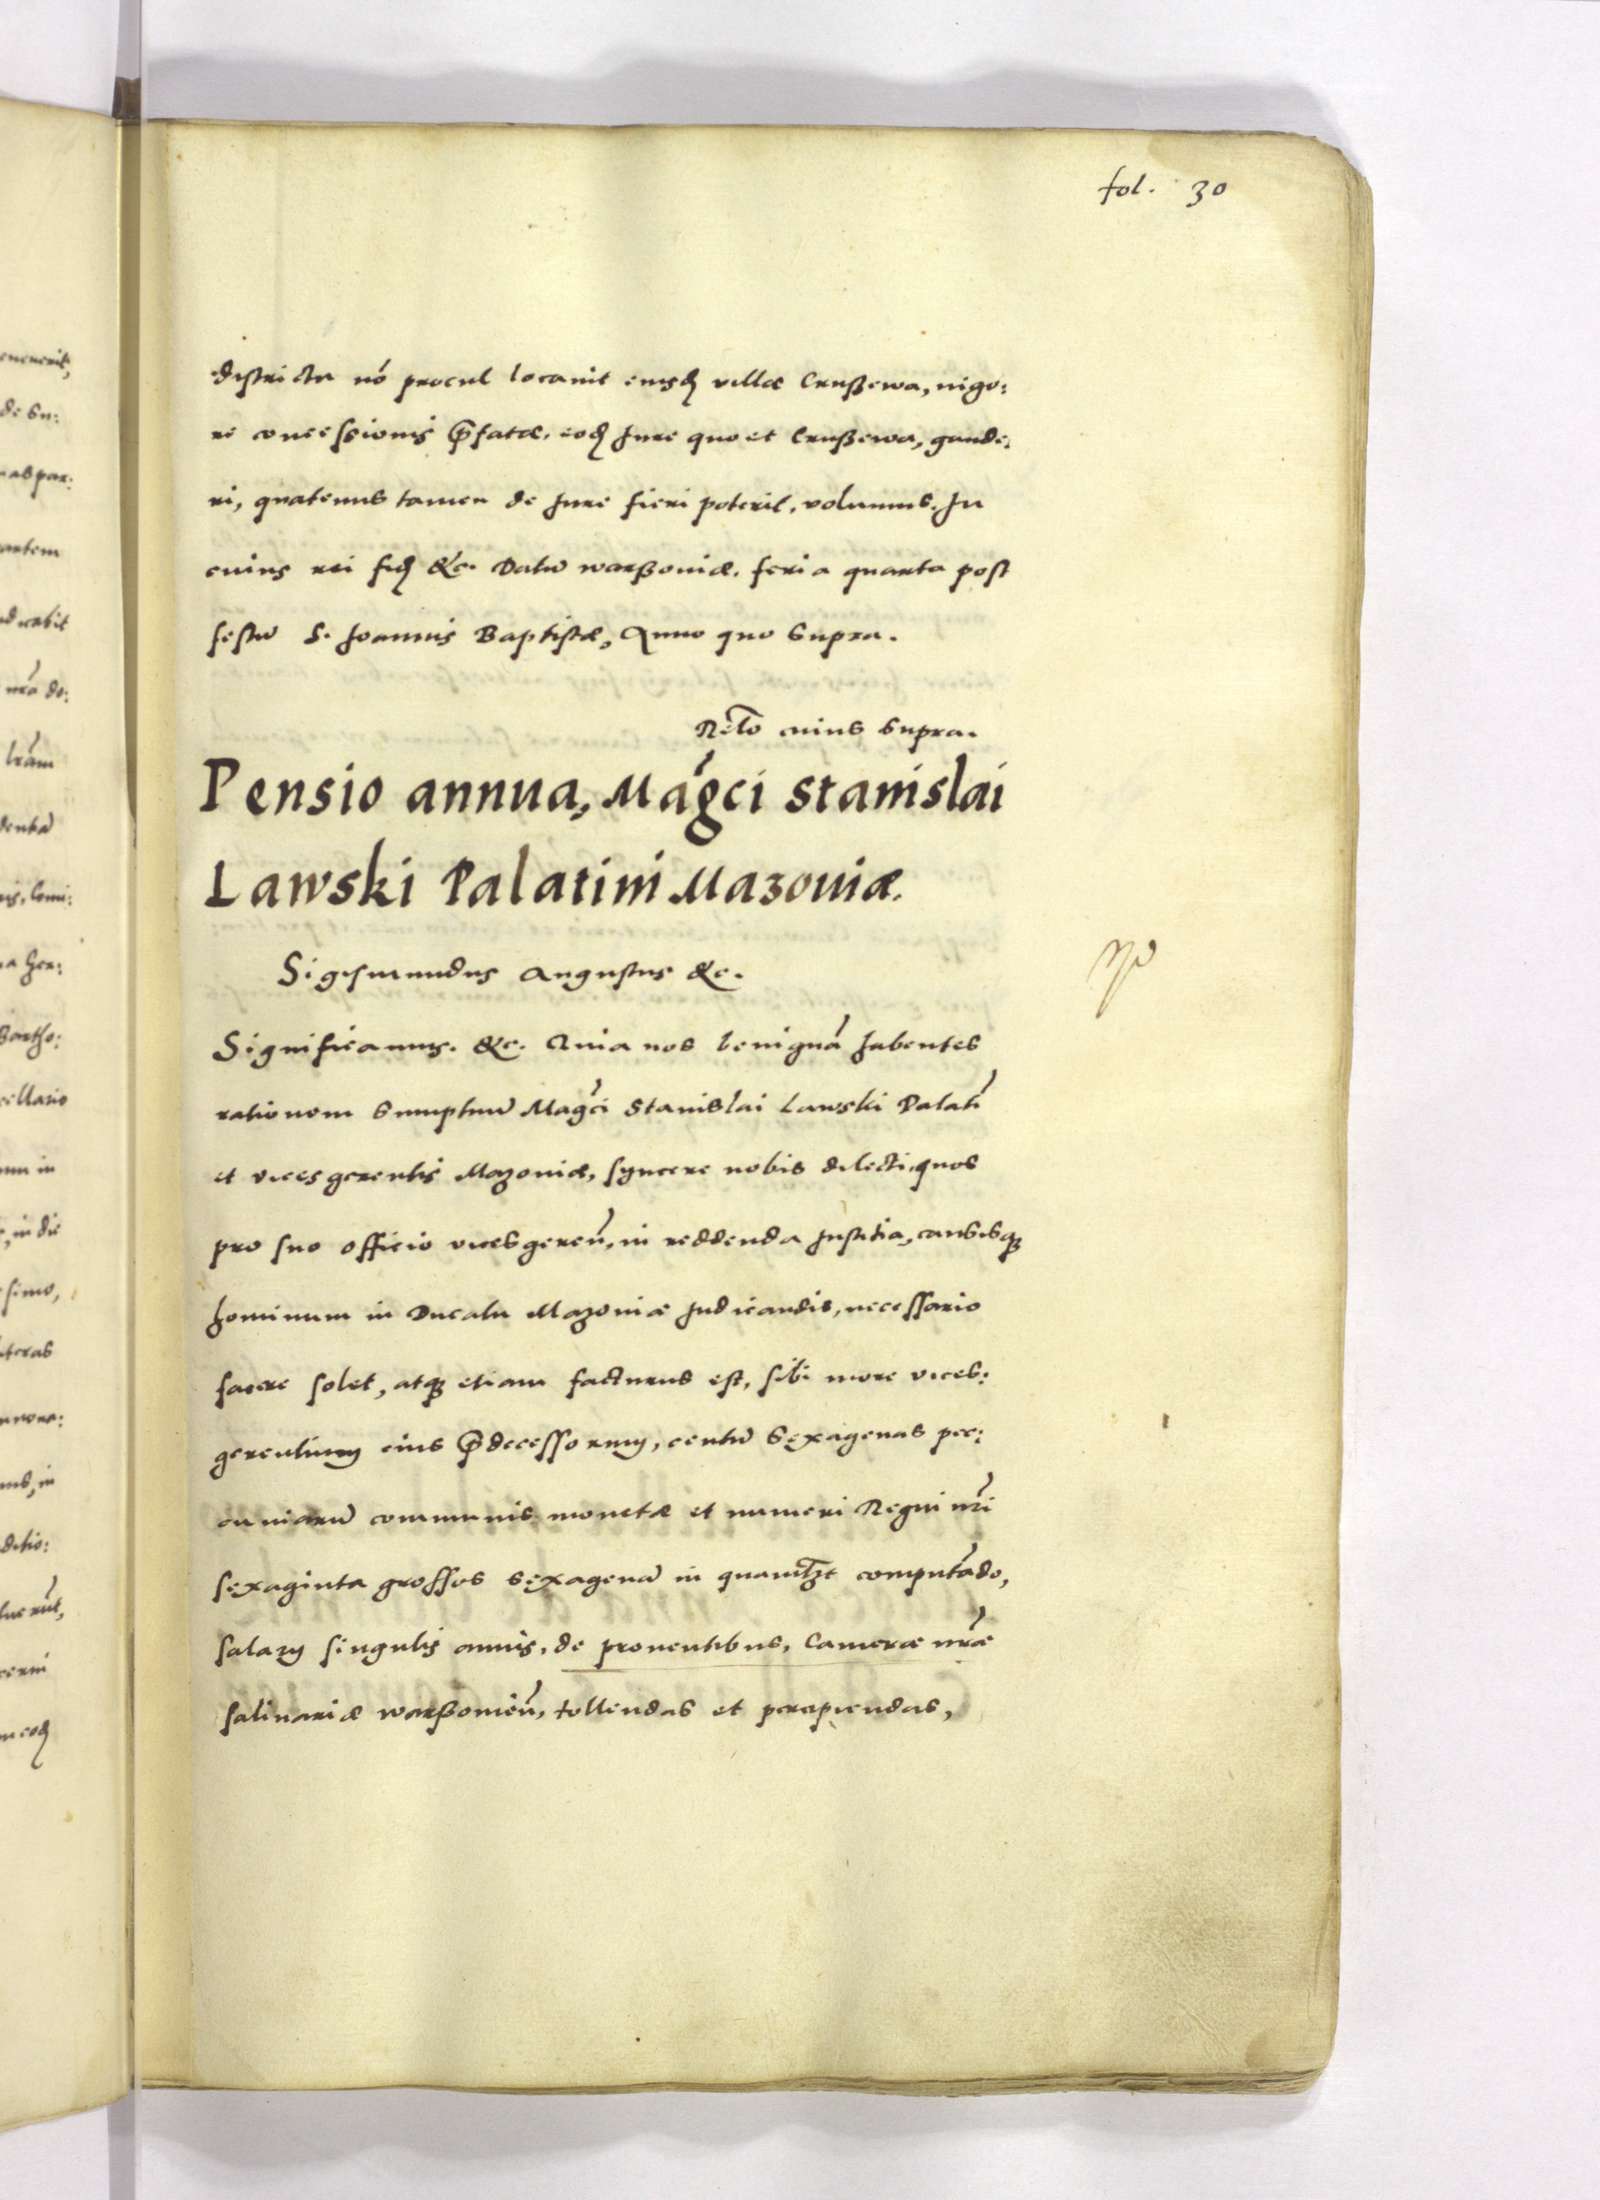 fol. 30
districtu nō procul locavit eiusꝗ villæ Crußewa, vigo:
re concessionis p̄fatæ, eodꝫ Jure quo et Crußewa, gaude:
ri, quatenus tamen de Jure fieri poterit, volumus. In
cuius rei fidꝫ &c. Datū warßoviæ. feria quarta post
festū S. Joannis Baptistæ, Anno quo supra.
Rel̄o cuius supra.
Pensio annua, Magci Stanislai
Lawski Palatini Mazoviæ.
Sigismundus Augustus &c.
Significamus. &c. Quia nos benignā habentes
rationem sumptuū Magci Stanislai Lawski Palati
et vicesgerentis Mazoviæ, syncere nobis dilecti, quos
pro suo officio vicesgereń, in reddenda Justitia, causisqꝫ
hominum in Ducatu Mazoviæ Judicandis, necessario
facere solet, atqꝫ etiam facturus est, sibi more vices:
gerentium eius p̄decessorum, centū sexagenas pec:
cuniarū communis monetæ et numeri Regni nr̄i
sexaginta grossos sexagenā in quamlꝫt computādo,
salarij singulis annis, de proventibus, Cameræ nr̄æ
salinariæ warßovień, tollendas et percipiendas,